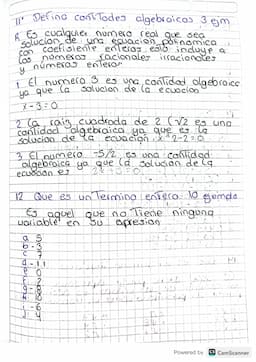 11* Defina cantitades algebraicas 3 ejm
R Es cualquier numero real que sea
solucion de una ecuacion polinomica
con coefisiente enteros, esto incluye a
los numeros racionales irracionales
y numeros enteros
1 El numero 3 es una cantidad algebraica
ya que la solucion de la ecuacion
x-3=0
2 la raiz cuadrada de 2 (√2 es una
cantidad algebraica ya que es la
solucion de la ecuacion x²-2=0
3 El numero -5/2 es una cantidad
algebraica ya que la solucion de la
ecuacion es
12 Que es un Termino entero 10 ejemplo
Es aquel que no Tiene ninguna
variable en su
a 5
b -3
c 7
d -11
e 0
f 2
g -8
h 10
i -6
j 4
Powered by CS CamScanner